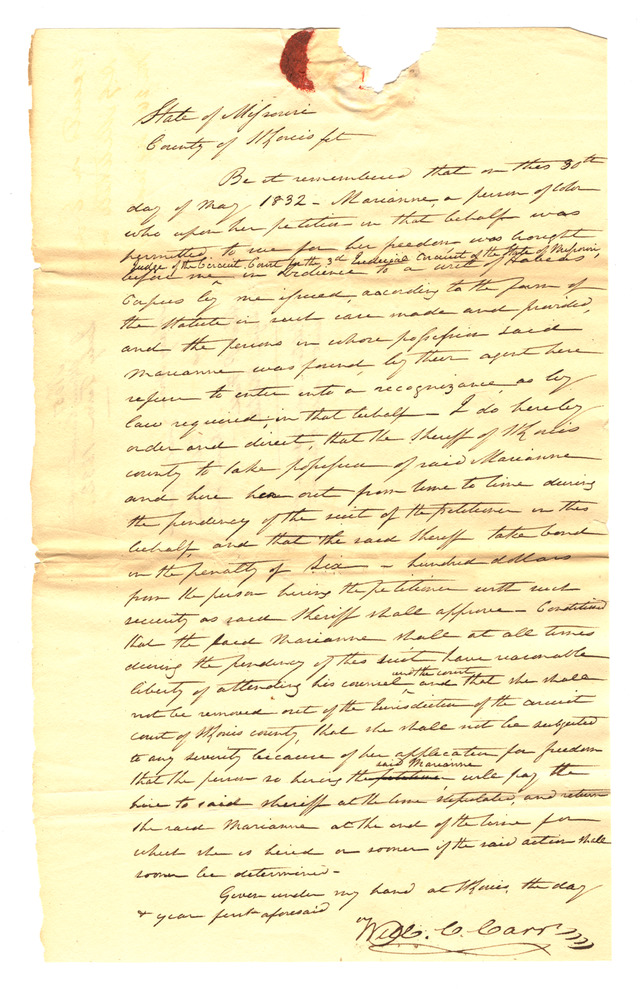 State of Missouri
County of St Louis sct
Be it remembered that on this 30th
day of May 1832 - Marianne a person of color
who upon her petition in that behalf was
permitted to sue for her freedom was brought
Judge of the Circuit Court for the 3d Judicial Circuit of the State of Missouri,
before me in obedience to a writ of Habeas
Corpus by me issued, according to the form of
the Statute in such case made and provided,
and the persons in whose possession said
Marianne was found by their agent here
refuse to enter into a recognizance, as by
law required in that behalf - I do hereby
order and direct, that the Sheriff of St Louis
county to take possession of said Marianne
and hire her out from time to time during
the pendency of the suit of the petitioner in this
behalf, and that the said Sheriff take bond
in the penalty of Six - hundred dollars
from the person hiring the petitioner with such
security as said Sheriff shall approve - Conditioned
that the said Marianne shall at all times
during the pendency of this suit have reasonable
and the court
liberty of attending his counsel and that she shall
not be removed out of the Jurisdiction of the circuit
court of St Louis county, that she shall not be subjected
to any severity because of her application for freedom
said Marianne
that the person so hiring the petitioner will pay the
hire to said sheriff at the time stipulated, and return
the said Marianne at the end of the time for
which she is hired or sooner if the said action shall
sooner be determined -
Given under my hand at St Louis, the day
& year first aforesaid
Wm. C. Carr